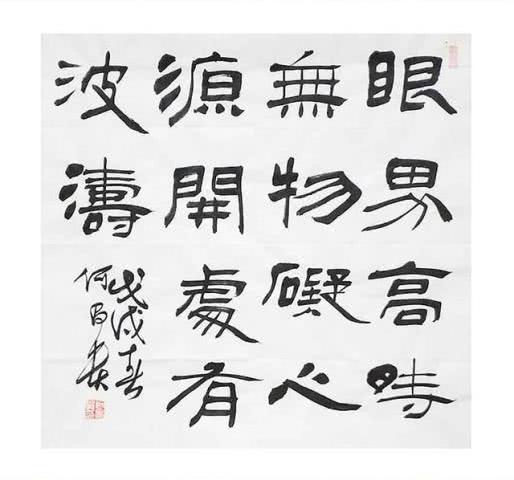 眼界高時
無物礙心
源開處有
波濤
戊戌春
何